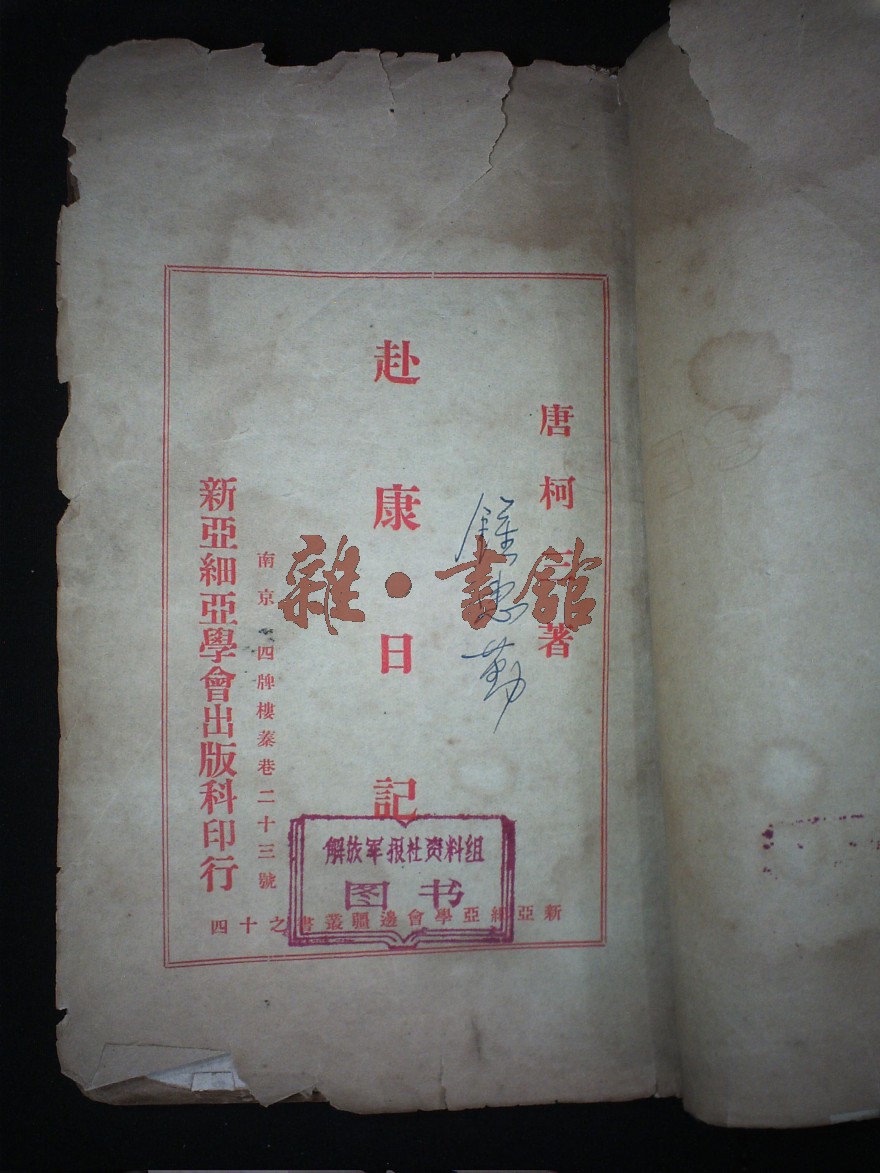 唐柯三著
赴康日記
南京四牌樓蓁巷二十三號
新亞細亞學會出版科印行
新亞細亞學會邊疆叢書之十四
解放军报社资料组
图书
雜·書館